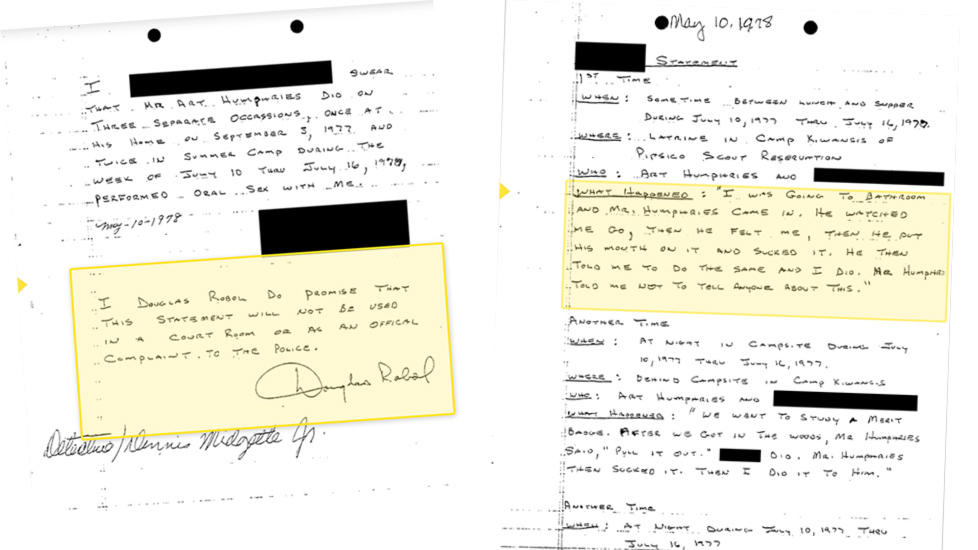 I
SWEAR
THAT MR ART HUMPHRIES DID ON
THREE SEPARATE OCCASSIONS, ONCE AT
HIS HOME ON SEPTEMBER 3, 1977 AND
TWICE IN SUMMER CAMP DURING THE
WEEK OF JULY 10 THRU JULY 16, 1977,
PERFORMED ORAL SEX WITH ME.
MAY-10-1978
I DOUGLAS ROBOL DO PROMISE THAT
THIS STATEMENT WILL NOT BE USED
IN A COURT ROOM OR AS AN OFFICAL
COMPLAINT TO THE POLICE.
Douglas Robol
Detective/Dennis Midgette Jr.
May 10, 1978
STATEMENT
1ST TIME
WHEN: SOMETIME BETWEEN LUNCH AND SUPPER
DURING JULY 10, 1977 THRU JULY 16, 1977.
WHERE: LATRINE IN CAMP KIWANSIS OF
PIPSICO SCOUT RESERVATION
WHO: ART HUMPHRIES AND
WHAT HAPPENED: "I WAS GOING TO BATHROOM
AND MR. HUMPHRIES CAME IN. HE WATCHED
ME GO, THEN HE FELT ME, THEN HE PUT
HIS MOUTH ON IT AND SUCKED IT. HE THEN
TOLD ME TO DO THE SAME AND I DID. MR HUMPHRIES
TOLD ME NOT TO TELL ANYONE ABOUT THIS."
ANOTHER TIME
WHEN: AT NIGHT IN CAMPSITE DURING JULY
10, 1977 THRU JULY 16, 1977.
WHERE: BEHIND CAMPSITE IN CAMP KIWANSIS
WHO: ART HUMPHRIES AND
WHAT HAPPENED: "WE WENT TO STUDY A MERIT
BADGE. AFTER WE GOT IN THE WOODS, MR HUMPHRIES
SAID, "PULL IT OUT." DID. MR. HUMPHRIES
THEN SUCKED IT. THEN I DID IT TO HIM."
ANOTHER TIME
WHEN: AT NIGHT DURING JULY 10, 1977 THRU
JULY 16, 1977